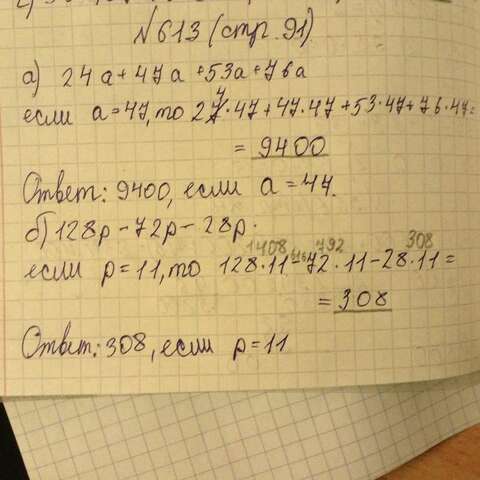 №613 (стр. 91)
а) 24a+47a+53a+76a
если a=47, то 24·47+47·47+53·47+76·47=
= 9400
Ответ: 9400, если a=47.
б) 128p-72p-28p.
1408 792 308
если p=11, то 128·11-72·11-28·11=
=308
Ответ: 308, если p=11